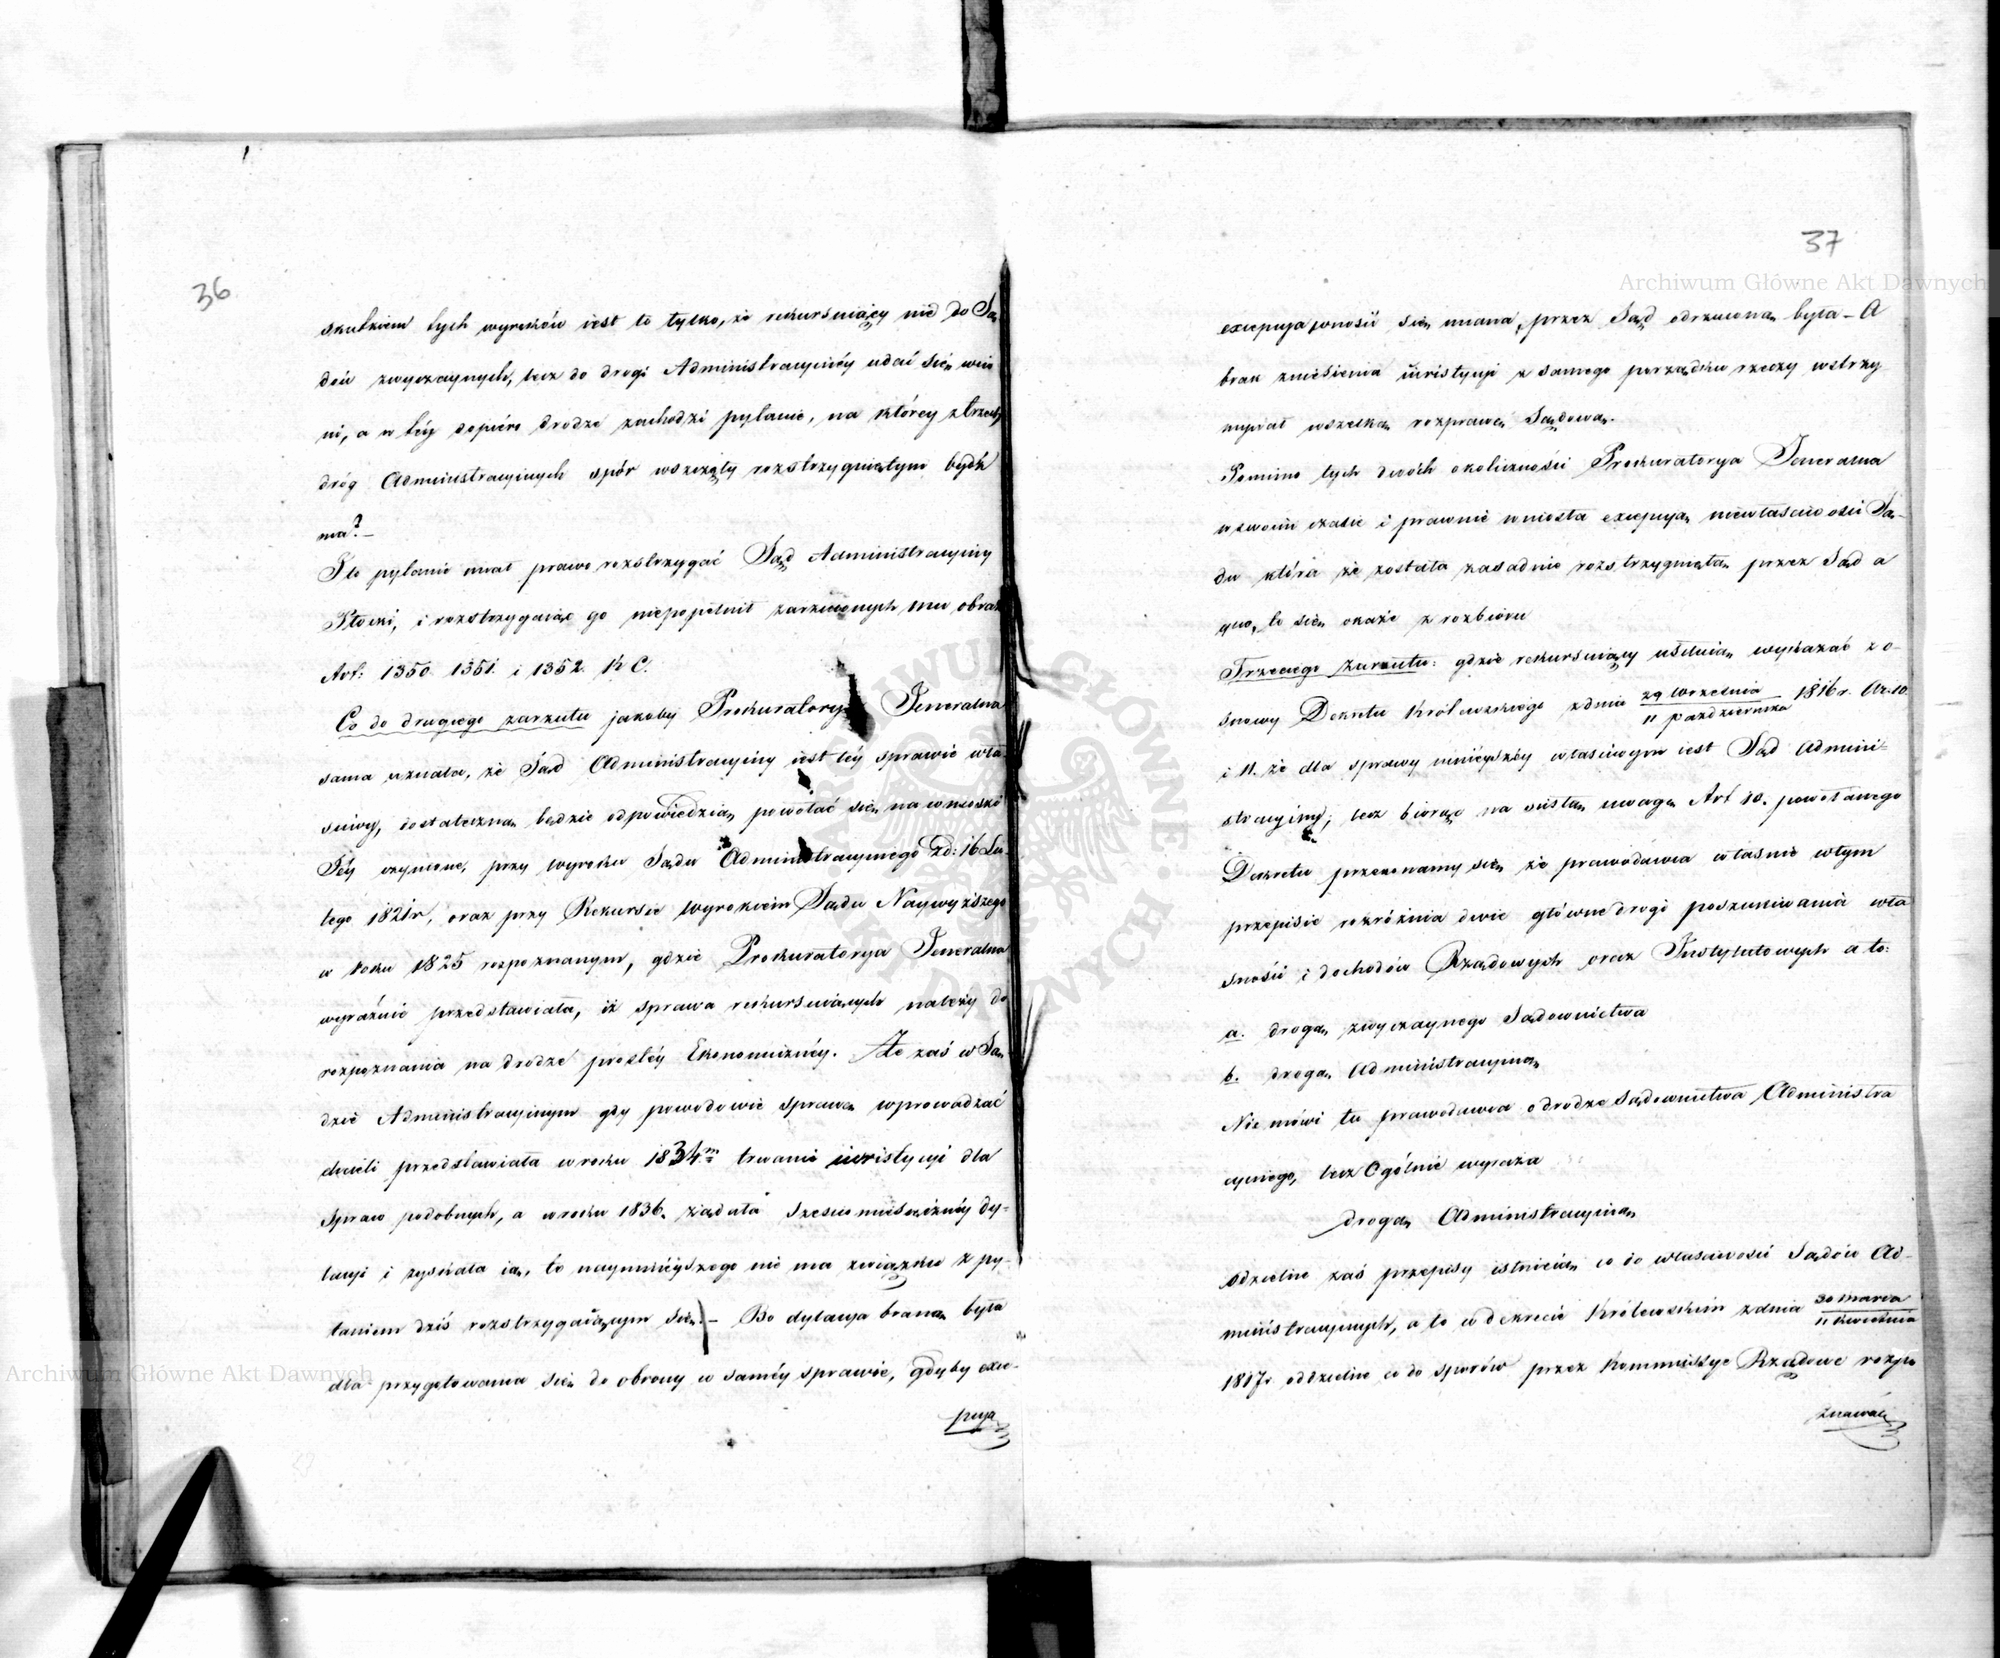 36
skutkiem tych wyroków iest to tylko, że rekursuiący nie do Są-
dów zwyczaynych, lecz do drogi Administracyinéy udać się wini
ni, a w téy dopiéro drodze zachodzi pytanie, na któréy z trzech
dróg Administracyinych spór wszczęty rozstrzygniętym bydź
ma? –
I to pytanie miał prawo rozstrzygać Sąd Administracyiny
Płocki, i rozstrzygaiąc go niepopełnił zarzuconych mu obraz
Art: 1350. 1351. i 1352. K C.
Co do drugiego zarzutu jakoby Prokuratorya Jeneralna
sama uznała, że Sąd Administracyiny iest téy sprawie wła-
sciwy, dostateczną będzie odpowiedzią powołać się na wnioski
Jéy czynione, przy wyroku Sądu Administracyinego z d: 16 Lu-
tego 1821r, oraz przy Rekursie wyrokiem Sądu Naywyższego
w roku 1825 rozpoznanym, gdzie Prokuratorya Jeneralna
wyraźnie przedstawiała, iż sprawa rekursuiących należy do
rozpoznania na drodze prostéy Ekonomicznéy. Że zaś w Są-
dzie Administracyinym gdy powodowie sprawę wprowadzać
chcieli przedstawiała w roku 1834m trwanie iuristycyi dla
spraw podobnych, a w roku 1836. żądała sześciomiesięcznéy dy-
lacyi i zyskała ią, to naymnieyszego nie ma związku z py-
taniem dziś rozstrzygaiącym się. – Bo dylacya braną była
dla przygotowania się do obrony w saméy sprawie, gdyby exce-
pcya
37
excepcya wnosić się miana, przez Sąd odrzuconą była – A
brak zniesienia iuristycyi z samego porządku rzeczy wstrzy
mywał wszelką rozprawę Sądową.
Pomimo tych dwóch okoliczności Prokuratorya Jeneralna
w swoim czasie i prawnie wniosła excepcyą niewłaściwości Są-
du która że została zasadnie rozstrzygniętą przez Sąd a
quo, to się okaże z rozbioru
Trzeciego zarzutu: gdzie rekursuiący usiłuią wykazać z o-
snowy Dekretu Królewskiego z dnia 29 Września / 11 października 1816 r. Ar: 10.
i 11. że dla sprawy ninieyszéy właściwym iest Sąd Admini-
stracyiny; lecz biorąc na ścisłą uwagę Art 10. powołanego
Dekretu przekonamy się że prawodawca właśnie w tym
przepisie rozróżnia dwie główne drogi poszukiwania wła
sności i dochodów Rządowych oraz Instytutowych a to:
a. drogą zwyczaynego Sądownictwa
b. drogą Administracyiną
Nie mówi tu prawodawca o drodze Sądownictwa Administra
cyinego, lecz Ogólnie wyraża
drogą Administracyiną
oddzielne zaś przepisy istnieią co do własciwości Sądów Ad-
ministracyinych, a to w dekrecie Królewskim z dnia 30 marca / 11 kwietnia
1817r oddzielne co do sporów przez Kommissye Rządowe rozpo
znawać
Archiwum Główne Akt Dawnych
Archiwum Główne Akt Dawnych
ARCHIWUM GŁÓWNE AKT DAWNYCH